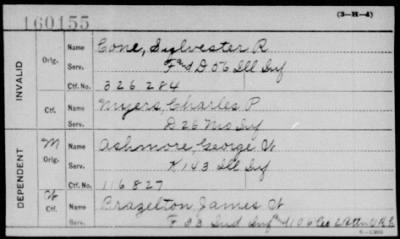 160155
(3-H-4)
INVALID
Orig. Name Cone, Sylvester R
Serv. F & D 56 Ill Inf
Ctf. No. 326284
Ctf. Name Myers, Charles P
Serv. D 26 Mo Inf
DEPENDENT
M Orig. Name Ashmore, George W
Serv. K 143 Ill Inf
Ctf. No. 116827
Ctf. Name Brazelton, James W
Serv. F 33 Ind Inf & 106 Co 2 Battn V.R.C.